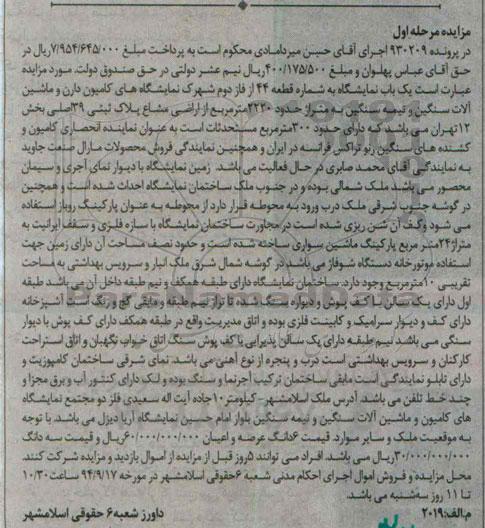 مزایده مرحله اول
در پرونده ۹۳۰۲۰۹ اجرای آقای حسین میردامادی محکوم است به پرداخت مبلغ ۷/۹۵۴/۶۴۵/۰۰۰ریال در
حق آقای عباس پهلوان و مبلغ ۴۰۰/۱۷۵/۵۰۰ریال نیم عشر دولتی در حق صندوق دولت. مورد مزایده
عبارت است یک باب نمایشگاه به شماره قطعه ۴۴ از فاز دوم شهرک نمایشگاه های کامیون دارن و ماشین
آلات سنگین و نیمه سنگین به متراژ حدود ۲۲۲۰مترمربع از اراضی مشاع پلاک ثبتی ۳۹اصلی بخش
۱۲تهران می باشد که دارای حدود ۳۰۰مترمربع مستحدثات است به عنوان نماینده انحصاری کامیون و
کشنده های سنگین رنو تراکس فرانسه در ایران و همچنین نمایندگی فروش محصولات مارال صنعت جاوید
به نمایندگی آقای محمد صابری در حال فعالیت می باشد. زمین نمایشگاه با دیوار نمای آجری و سیمان
محصور می باشد ملک شمالی بوده و در جنوب ملک ساختمان نمایشگاه احداث شده است و همچنین
در گوشه جنوب شرقی ملک درب ورود به محوطه قرار دارد از محوطه به عنوان پارکینگ روباز استفاده
می شود وکف آن شن ریزی شده است در مجاورت ساختمان نمایشگاه با سازه فلزی و سقف ایرانیت به
متراژ۲۴متر مربع پارکینگ ماشین سواری ساخته شده است و حدود نصف مساحت آن دارای زمین جهت
استفاده موتورخانه دستگاه شوفاژ می باشد در گوشه شمال شرق ملک انبار و سرویس بهداشتی به مساحت
تقریبی ۱۰مترمربع وجود دارد. ساختمان نمایشگاه دارای طبقه همکف و نیم طبقه داخل آن می باشد طبقه
اول دارای یک سالن با کف پوش و دیواره سنگ شده تا تراز نیم طبقه و مابقی گچ و رنگ است آشپزخانه
دارای کف و دیوار سرامیک و کابینت فلزی بوده و اتاق مدیریت واقع در طبقه همکف دارای کف پوش با دیوار
سنگی می باشد نیم طبقه دارای یک سالن پذیرایی با کف پوش سنگ اتاق خواب نگهبان و اتاق استراحت
کارکنان و سرویس بهداشتی است درب و پنجره از نوع آهنی می باشد. نمای شرقی ساختمان کامپوزیت و
دارای تابلو نمایندگی است مابقی ساختمان ترکیب آجرنما و سنگ بوده و ملک دارای کنتور آب و برق مجزا و
چند خط تلفن می باشد. آدرس ملک اسلامشهر- کیلومتر۱۰جاده آیت اله سعیدی فلز دو مجتمع نمایشگاه
های کامیون و ماشین آلات سنگین و نیمه سنگین بلوار امام حسین نمایشگاه آریا دیزل می باشد. با توجه
به موقعیت ملک و سایر موارد. قیمت ۶دانگ عرصه و اعیان ۶۰/۰۰۰/۰۰۰/۰۰۰ریال و قیمت سه دانگ
۳۰/۰۰۰/۰۰۰/۰۰۰ریال می باشد. افراد می توانند ۵روز قبل از مزایده از اموال بازدید و مزایده شرکت کنند.
محل مزایده و فروش اموال اجرای احکام مدنی شعبه ۶حقوقی اسلامشهر در مورخه ۹۴/۹/۱۷ ساعت ۱۰/۳۰
تا ۱۱ روز سه‌شنبه می باشد.
م.الف:۲۰۱۹ داورز شعبه۶ حقوقی اسلامشهر